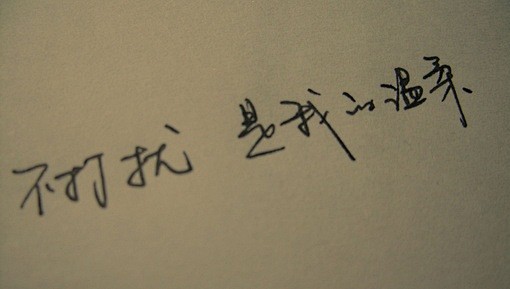 不打扰 是我的温柔